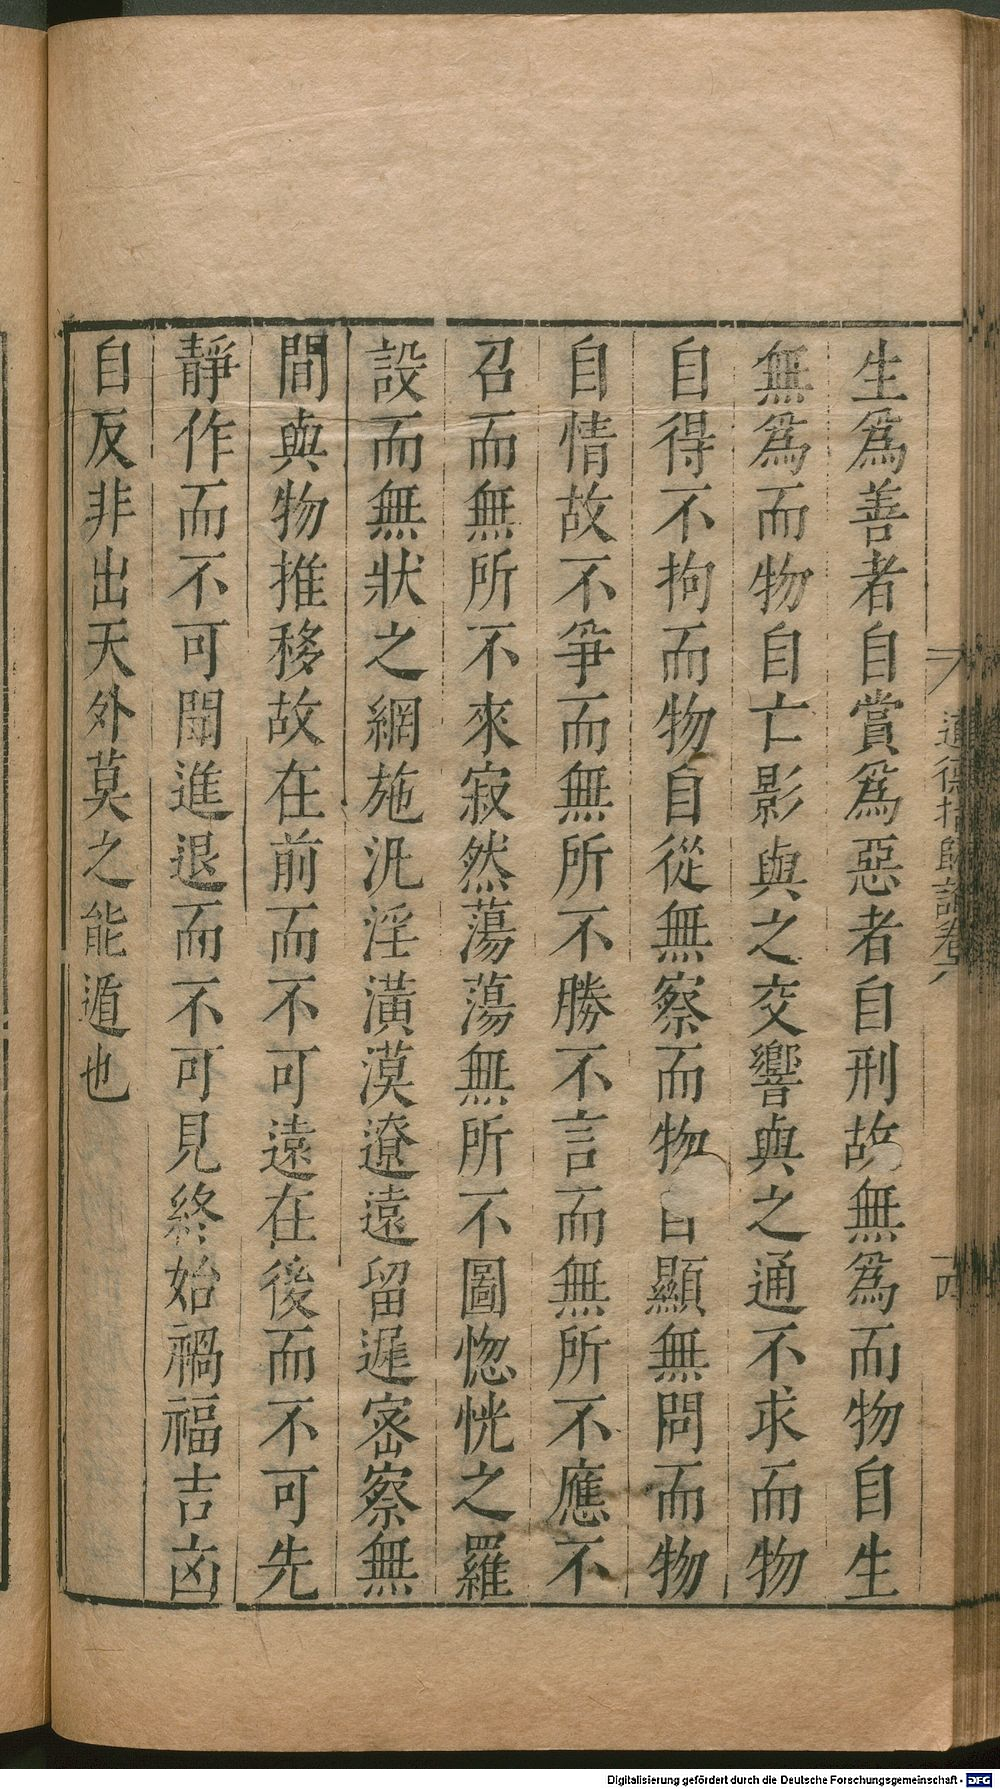 生爲善者自賞爲惡者自刑故無爲而物自生
無爲而物自亡影與之交響與之通不求而物
自得不拘而物自從無察而物自顯無問而物
自情故不爭而無所不勝不言而無所不應不
召而無所不來寂然蕩蕩無所不圖惚恍之羅
設而無狀之網施汎淫潢漠遼遠留遲密察無
間與物推移故在前而不可遠在後而不可先
靜作而不可聞進退而不可見終始禍福吉凶
自反非出天外莫之能遁也
道德指歸論卷六
十四
Digitalisierung gefördert durch die Deutsche Forschungsgemeinschaft - DFG